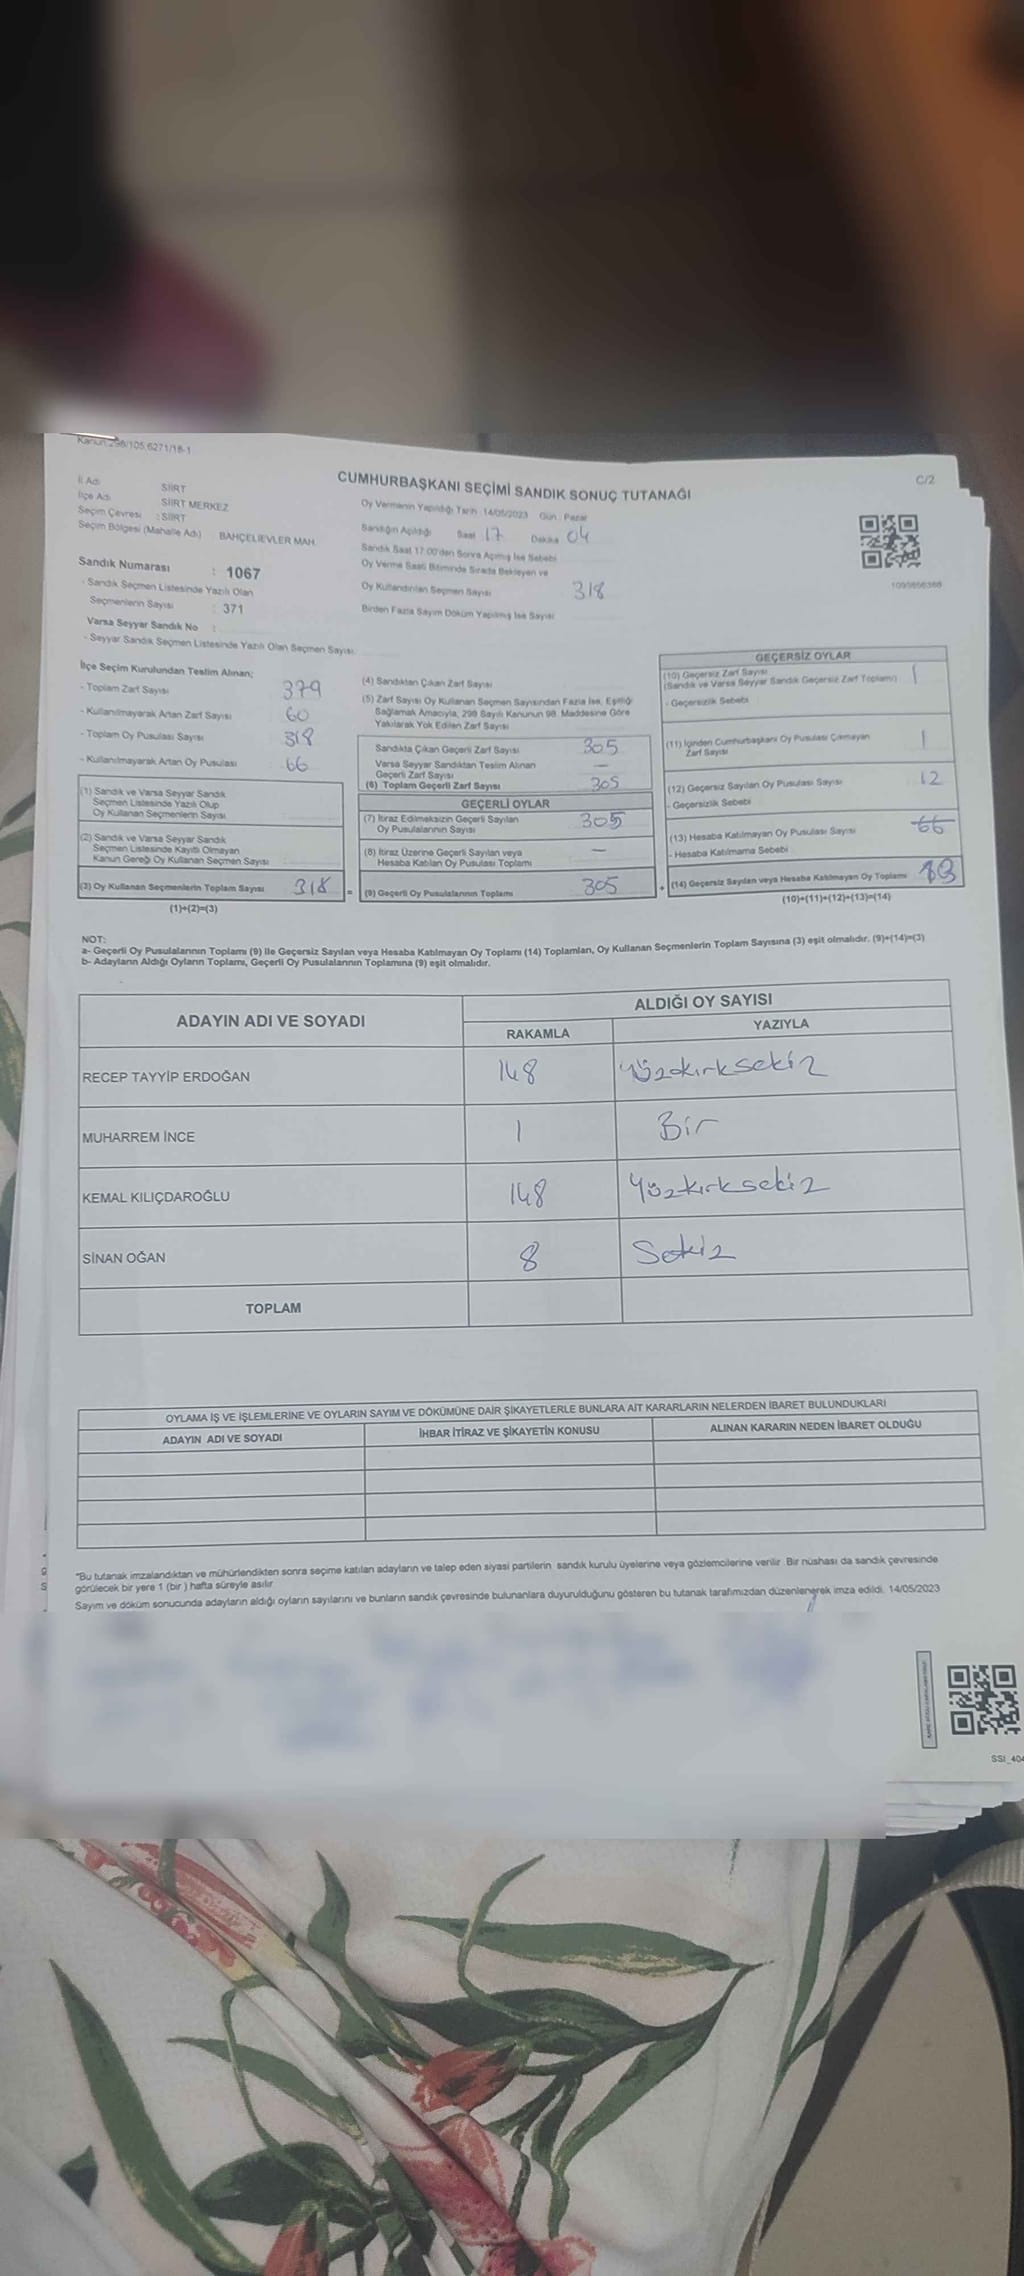 Kanun:298/105,6271/18-1
CUMHURBAŞKANI SEÇİMİ SANDIK SONUÇ TUTANAĞI
C/2
İl Adı : SİİRT
İlçe Adı : SİİRT MERKEZ
Seçim Çevresi : SİİRT
Seçim Bölgesi (Mahalle Adı) : BAHÇELİEVLER MAH.
Sandık Numarası : 1067
- Sandık Seçmen Listesinde Yazılı Olan
Seçmenlerin Sayısı : 371
Varsa Seyyar Sandık No :
- Seyyar Sandık Seçmen Listesinde Yazılı Olan Seçmen Sayısı
Oy Vermenin Yapıldığı Tarih :14/05/2023 Gün : Pazar
Sandığın Açıldığı Saat 17 Dakika 04
Sandık Saat 17.00'den Sonra Açılmış İse Sebebi
Oy Verme Saati Bitiminde Sırada Bekleyen ve
Oy Kullandırılan Seçmen Sayısı 318
Birden Fazla Sayım Döküm Yapılmış İse Sayısı
İlçe Seçim Kurulundan Teslim Alınan;
- Toplam Zarf Sayısı 379
- Kullanılmayarak Artan Zarf Sayısı 60
- Toplam Oy Pusulası Sayısı 318
- Kullanılmayarak Artan Oy Pusulası 66
(1) Sandık ve Varsa Seyyar Sandık
Seçmen Listesinde Yazılı Olup
Oy Kullanan Seçmenlerin Sayısı
(2) Sandık ve Varsa Seyyar Sandık
Seçmen Listesinde Kayıtlı Olmayan
Kanun Gereği Oy Kullanan Seçmen Sayısı
(3) Oy Kullanan Seçmenlerin Toplam Sayısı 318 =
(1)+(2)=(3)
(4) Sandıktan Çıkan Zarf Sayısı
(5) Zarf Sayısı Oy Kullanan Seçmen Sayısından Fazla İse, Eşitliği
Sağlamak Amacıyla, 298 Sayılı Kanunun 98. Maddesine Göre
Yakılarak Yok Edilen Zarf Sayısı
Sandıkta Çıkan Geçerli Zarf Sayısı 305
Varsa Seyyar Sandıktan Teslim Alınan
Geçerli Zarf Sayısı —
(6) Toplam Geçerli Zarf Sayısı 305
GEÇERLİ OYLAR
(7) İtiraz Edilmeksizin Geçerli Sayılan
Oy Pusulalarının Sayısı 305
(8) İtiraz Üzerine Geçerli Sayılan veya
Hesaba Katılan Oy Pusulası Toplamı —
(9) Geçerli Oy Pusulalarının Toplamı 305 +
GEÇERSİZ OYLAR
(10) Geçersiz Zarf Sayısı 1
(Sandık ve Varsa Seyyar Sandık Geçersiz Zarf Toplamı)
- Geçersizlik Sebebi
(11) İçinden Cumhurbaşkanı Oy Pusulası Çıkmayan
Zarf Sayısı 1
(12) Geçersiz Sayılan Oy Pusulası Sayısı 12
- Geçersizlik Sebebi
(13) Hesaba Katılmayan Oy Pusulası Sayısı 66
- Hesaba Katılmama Sebebi
(14) Geçersiz Sayılan veya Hesaba Katılmayan Oy Toplamı 13
(10)+(11)+(12)+(13)=(14)
NOT:
a- Geçerli Oy Pusulalarının Toplamı (9) ile Geçersiz Sayılan veya Hesaba Katılmayan Oy Toplamı (14) Toplamları, Oy Kullanan Seçmenlerin Toplam Sayısına (3) eşit olmalıdır. (9)+(14)=(3)
b- Adayların Aldığı Oyların Toplamı, Geçerli Oy Pusulalarının Toplamına (9) eşit olmalıdır.
ADAYIN ADI VE SOYADI
ALDIĞI OY SAYISI
RAKAMLA YAZIYLA
RECEP TAYYİP ERDOĞAN 148 Yüzkırksekiz
MUHARREM İNCE 1 Bir
KEMAL KILIÇDAROĞLU 148 Yüzkırksekiz
SİNAN OĞAN 8 Sekiz
TOPLAM
OYLAMA İŞ VE İŞLEMLERİNE VE OYLARIN SAYIM VE DÖKÜMÜNE DAİR ŞİKAYETLERLE BUNLARA AİT KARARLARIN NELERDEN İBARET BULUNDUKLARI
ADAYIN ADI VE SOYADI İHBAR İTİRAZ VE ŞİKAYETİN KONUSU ALINAN KARARIN NEDEN İBARET OLDUĞU
*Bu tutanak imzalandıktan ve mühürlendikten sonra seçime katılan adayların ve talep eden siyasi partilerin sandık kurulu üyelerine veya gözlemcilerine verilir. Bir nüshası da sandık çevresinde
görülecek bir yere 1 (bir ) hafta süreyle asılır.
Sayım ve döküm sonucunda adayların aldığı oyların sayılarını ve bunların sandık çevresinde bulunanlara duyurulduğunu gösteren bu tutanak tarafımızdan düzenlenerek imza edildi. 14/05/2023
SSI_404